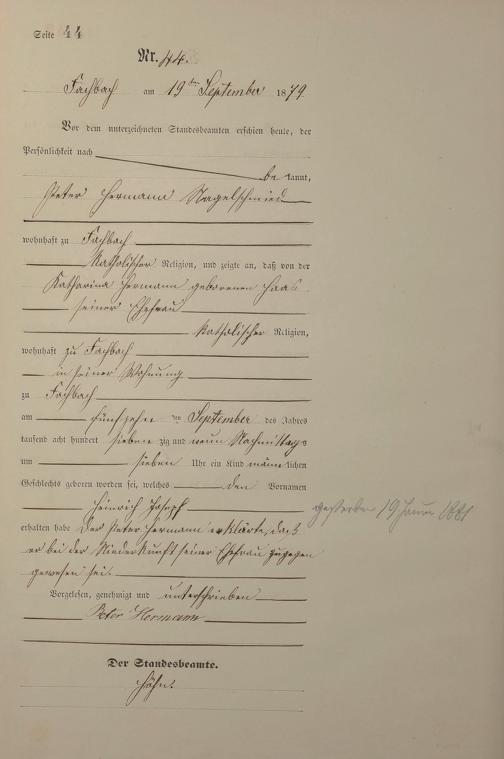 Seite 44
Nr. 44.
Fachbach am 19ten September 1879
Vor dem unterzeichneten Standesbeamten erschien heute, der
Persönlichkeit nach
be kannt,
Peter Hermann Nagelschmied
wohnhaft zu Fachbach
Katholischer Religion, und zeigte an, daß von der
Katharina Hermann geborenen Haas
seiner Ehefrau
Katholischer Religion,
wohnhaft zu Fachbach
in seiner Wohnung
zu Fachbach
am fünfzehn ten September des Jahres
tausend acht hundert sieben zig und neun Nachmittags
um sieben Uhr ein Kind männ lichen
Geschlechts geboren worden sei, welches den Vornamen
Heinrich Joseph
gestorben 19 1881
erhalten habe Der Peter Hermann erklärte, daß
er bei der Niederkunft seiner Ehefrau zugegen
gewesen sei.
Vorgelesen, genehmigt und unterschrieben
Peter Hermann
Der Standesbeamte.
Höhn.